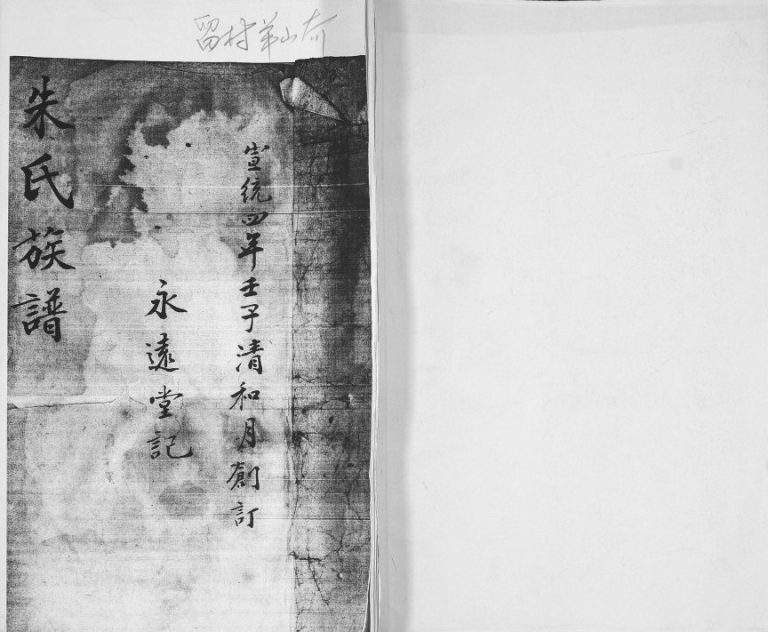 留村
宣統四年壬子清和月創訂
永遠堂記
朱氏族譜